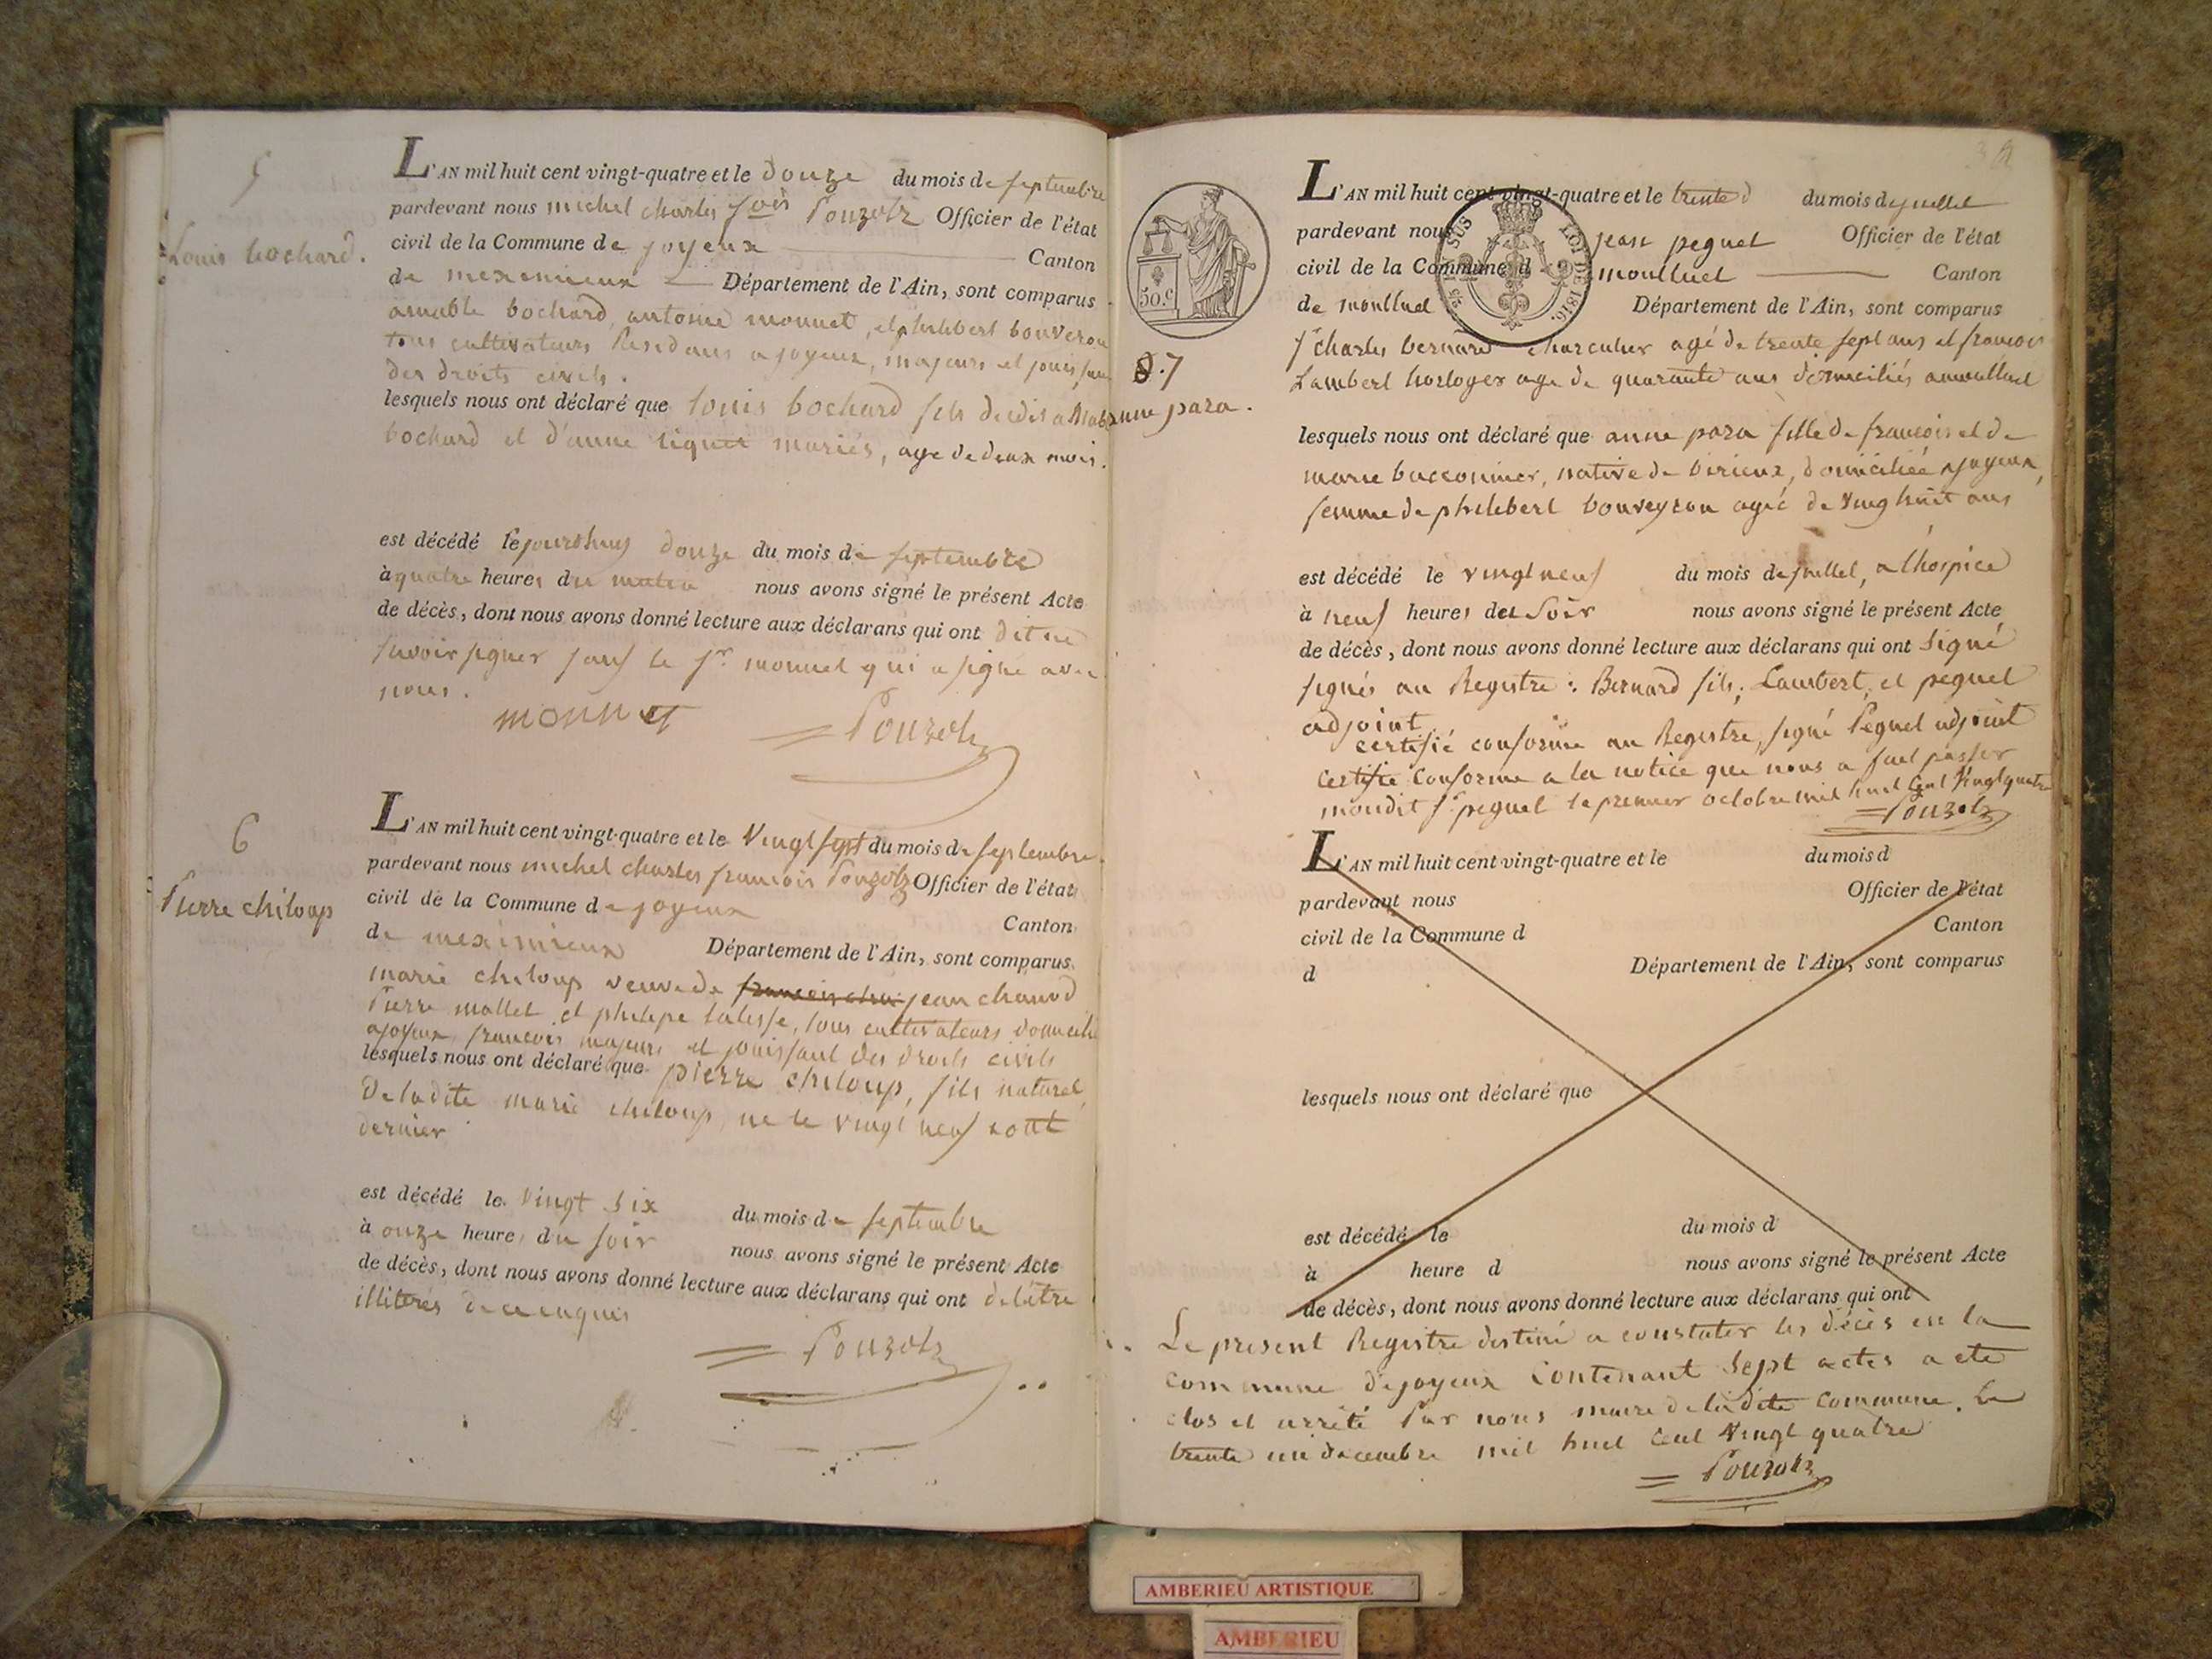 5
Louis bochard.
L'AN mil huit cent vingt-quatre et le douze du mois de septembre
pardevant nous michel charles fois Pouzols Officier de l'état
civil de la Commune de joyeux Canton
de meximieux Département de l'Ain, sont comparus
amable bochard, antoine monnet, et philibert bouveron
tous cultivateurs Residans a joyeux, majeurs et jouissant
des droits civils.
lesquels nous ont déclaré que louis bochard fils dudit amable
bochard et d'anne mariés, age de deux mois.
est décédé le jourdhuy douze du mois de septembre
à quatre heures du matin nous avons signé le présent Acte
de décès, dont nous avons donné lecture aux déclarans qui ont dit ne
savoir signer sauf le sr. monnet qui a signé avec
nous.
monnet Pouzols
6
Pierre chiloup
L'AN mil huit cent vingt-quatre et le Vingt sept du mois de septembre
pardevant nous michel charles francois Pouzols Officier de l'état
civil de la Commune de joyeux
Canton
de meximieux Département de l'Ain, sont comparus
marie chiloup veuve de jean chanod
Pierre mallet et philipe, tous cultivateurs domicilié
a joyeux, francois majeurs et jouissant des droits civils
lesquels nous ont déclaré que pierre chiloup, fils naturel
De ladite marie chiloup, ne le vingt neuf aout
dernier
est décédé le Vingt six du mois de septembre
à onze heures du soir nous avons signé le présent Acte
de décès, dont nous avons donné lecture aux déclarans qui ont dit être
illiterés de ce enquis
Pouzols
50.c
7
anne para.
L'AN mil huit cent vingt-quatre et le trente du mois de juillet
pardevant nous jean peguet Officier de l'état
civil de la Commune d montluel Canton
de montluel Département de l'Ain, sont comparus
sr charles bernard charcutier agé de trente sept ans et francois
Lambert horloger age de quarante ans domiciliés a montluel
lesquels nous ont déclaré que anne para fille de francois et de
marie, native de birieux, domiciliée a joyeux,
femme de philibert bouveyron agée de vingt huit ans
est décédé le vingt neuf du mois de juillet, a lhospice
à neuf heures du Soir nous avons signé le présent Acte
de décès, dont nous avons donné lecture aux déclarans qui ont signé
signés au Registre: Bernard fils, Lambert, et peguet
adjoint
certifié conforme au Registre, signé Peguet adjoint
certifié conforme a la notice que nous a fait passer
mondit sr. peguet le premier octobre mil huit Cent Vingt quatre
Pouzols
L'AN mil huit cent vingt-quatre et le du mois d
pardevant nous Officier de l'état
civil de la Commune d Canton
d Département de l'Ain, sont comparus
lesquels nous ont déclaré que
est décédé le du mois d
à heure d nous avons signé le présent Acte
de décès, dont nous avons donné lecture aux déclarans qui ont
Le present Registre destiné a constater les décès en la
commune de joyeux Contenant Sept actes a ete
clos et arrêté Par nous maire de ladite commune. Le
trente un decembre mil huit cent Vingt quatre
Pouzols
AMBERIEU ARTISTIQUE
AMBERIEU